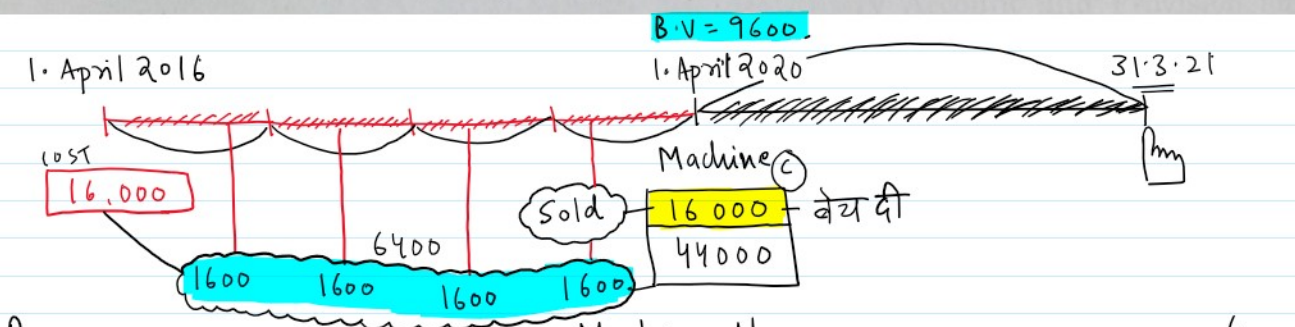 B.V = 9600.
1. April 2016
1. April 2020
31.3.21
COST
16,000
Machine C
Sold
16 000
बेच दी
44000
6400
1600 1600 1600 1600